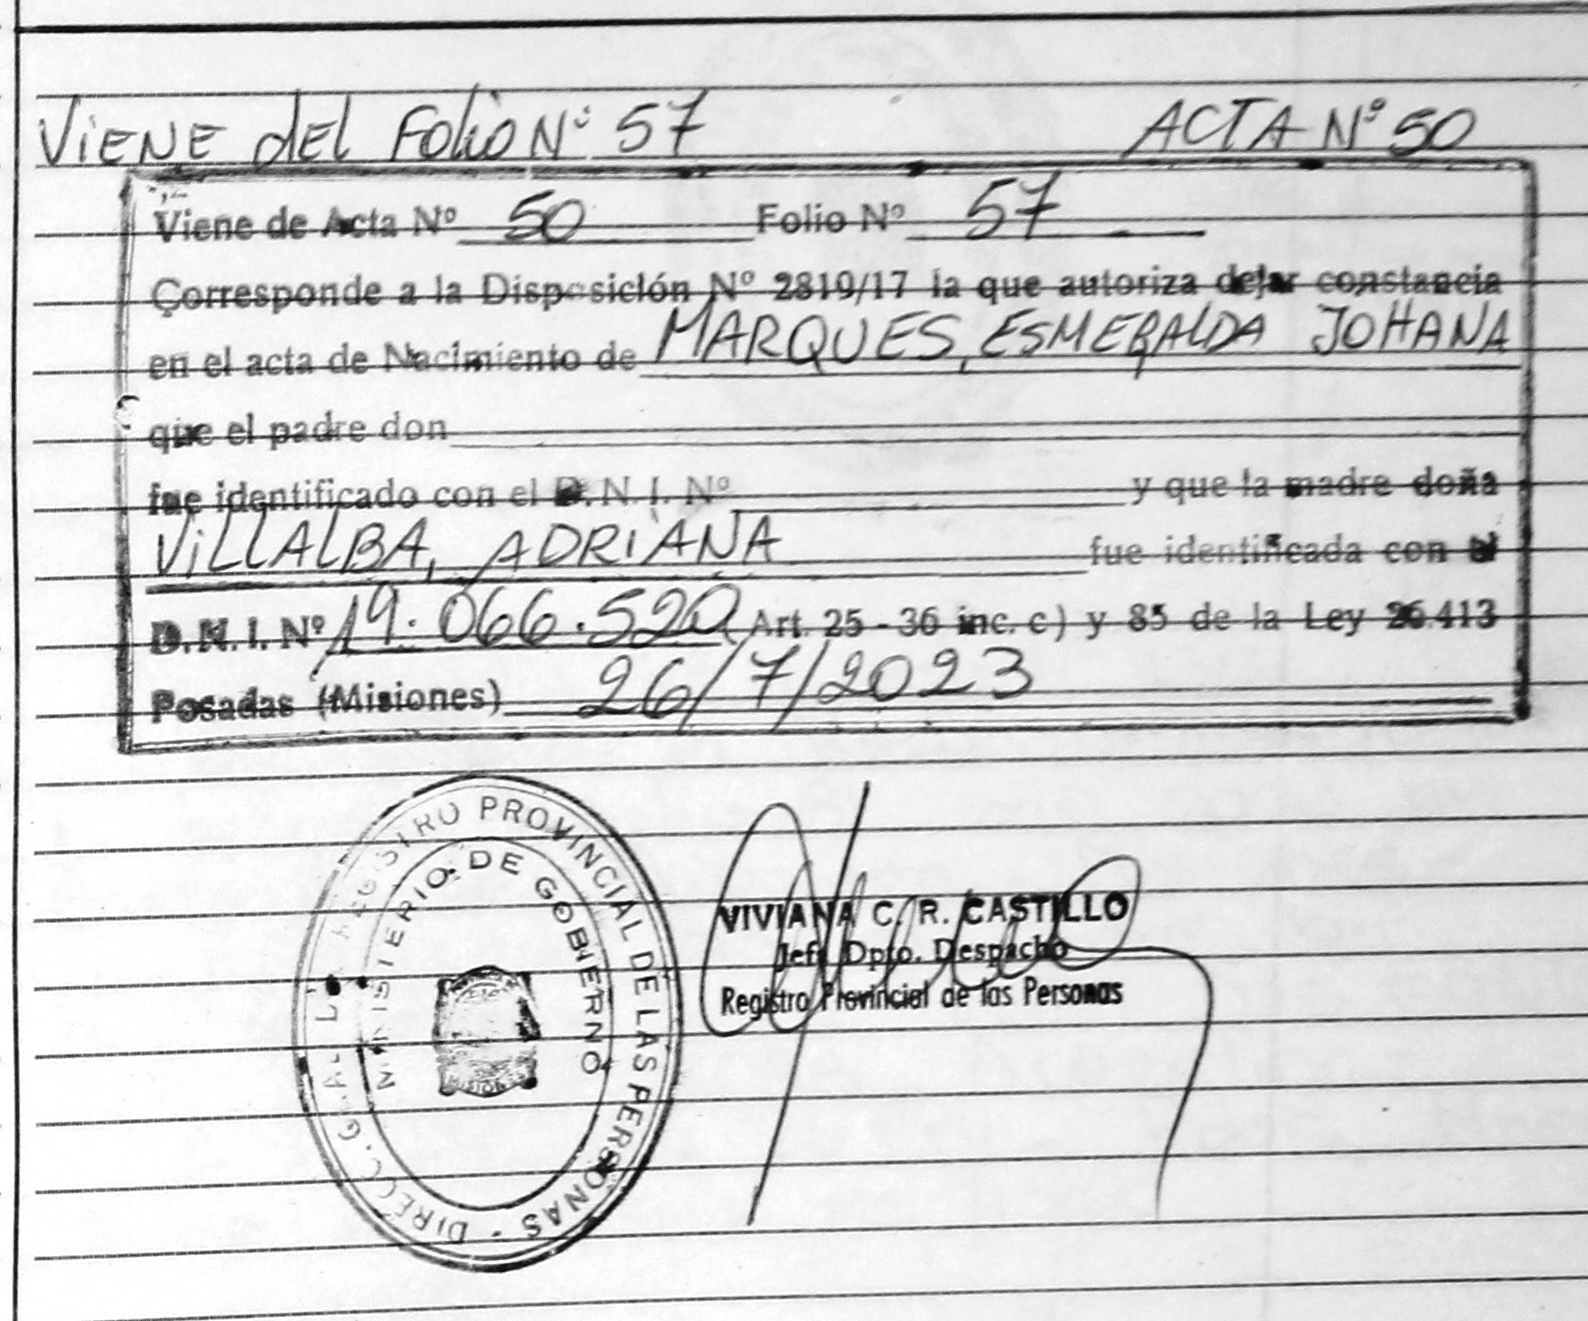 ViENE dEL FOLiO N° 57 ACTA N° 50
Viene de Acta Nº 50 Folio Nº 57
Corresponde a la Disposición Nº 2819/17 la que autoriza dejar constancia
en el acta de Nacimiento de MARQUES, ESMERALDA JOHANA
que el padre don
fue identificado con el D. N. I. Nº y que la madre doña
ViLLALBA, ADRiANA fue identificada con el
D.N.I. Nº 19.066.520 (Art. 25 - 36 inc. c) y 85 de la Ley 26.413
Posadas (Misiones) 26/7/2023
DIRECC. GRAL. REGISTRO PROVINCIAL DE LAS PERSONAS -
MINISTERIO DE GOBIERNO
MISIONES
VIVIANA C. R. CASTILLO
Jefe Dpto. Despacho
Registro Provincial de las Personas